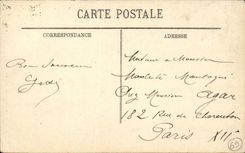 CARTE POSTALE
CORRESPONDANCE
ADRESSE
Bon Souvenir
Madame et Monsieur
Chez Monsieur Agar
182 Rue de Charenton
Paris XIIe